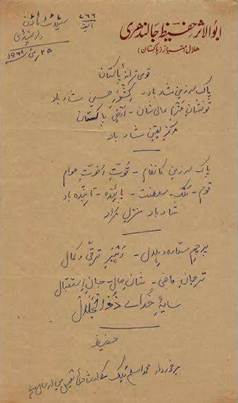 ابوالاثر حفیظ جالندھری
ہلال امتیاز (پاکستان)
۷۶۶
قومی ترانہ پاکستان
پاک سرزمین شاد باد کشورِ حسین شاد باد
تو نشانِ عزمِ عالی شان - ارضِ پاکستان
مرکزِ یقین شاد باد
پاک سرزمین کا نظام - قوتِ اخوتِ عوام
قوم - ملک - سلطنت - پائندہ - تابندہ باد
شاد باد منزلِ مراد
پرچمِ ستارہ و ہلال - رہبرِ ترقی و کمال
ترجمانِ ماضی - شانِ حال - جانِ استقبال
سایۂ خدائے ذوالجلال
حفیظ